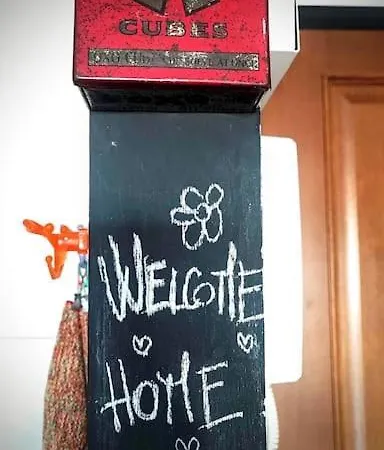 CUBES
WELCOME
HOME